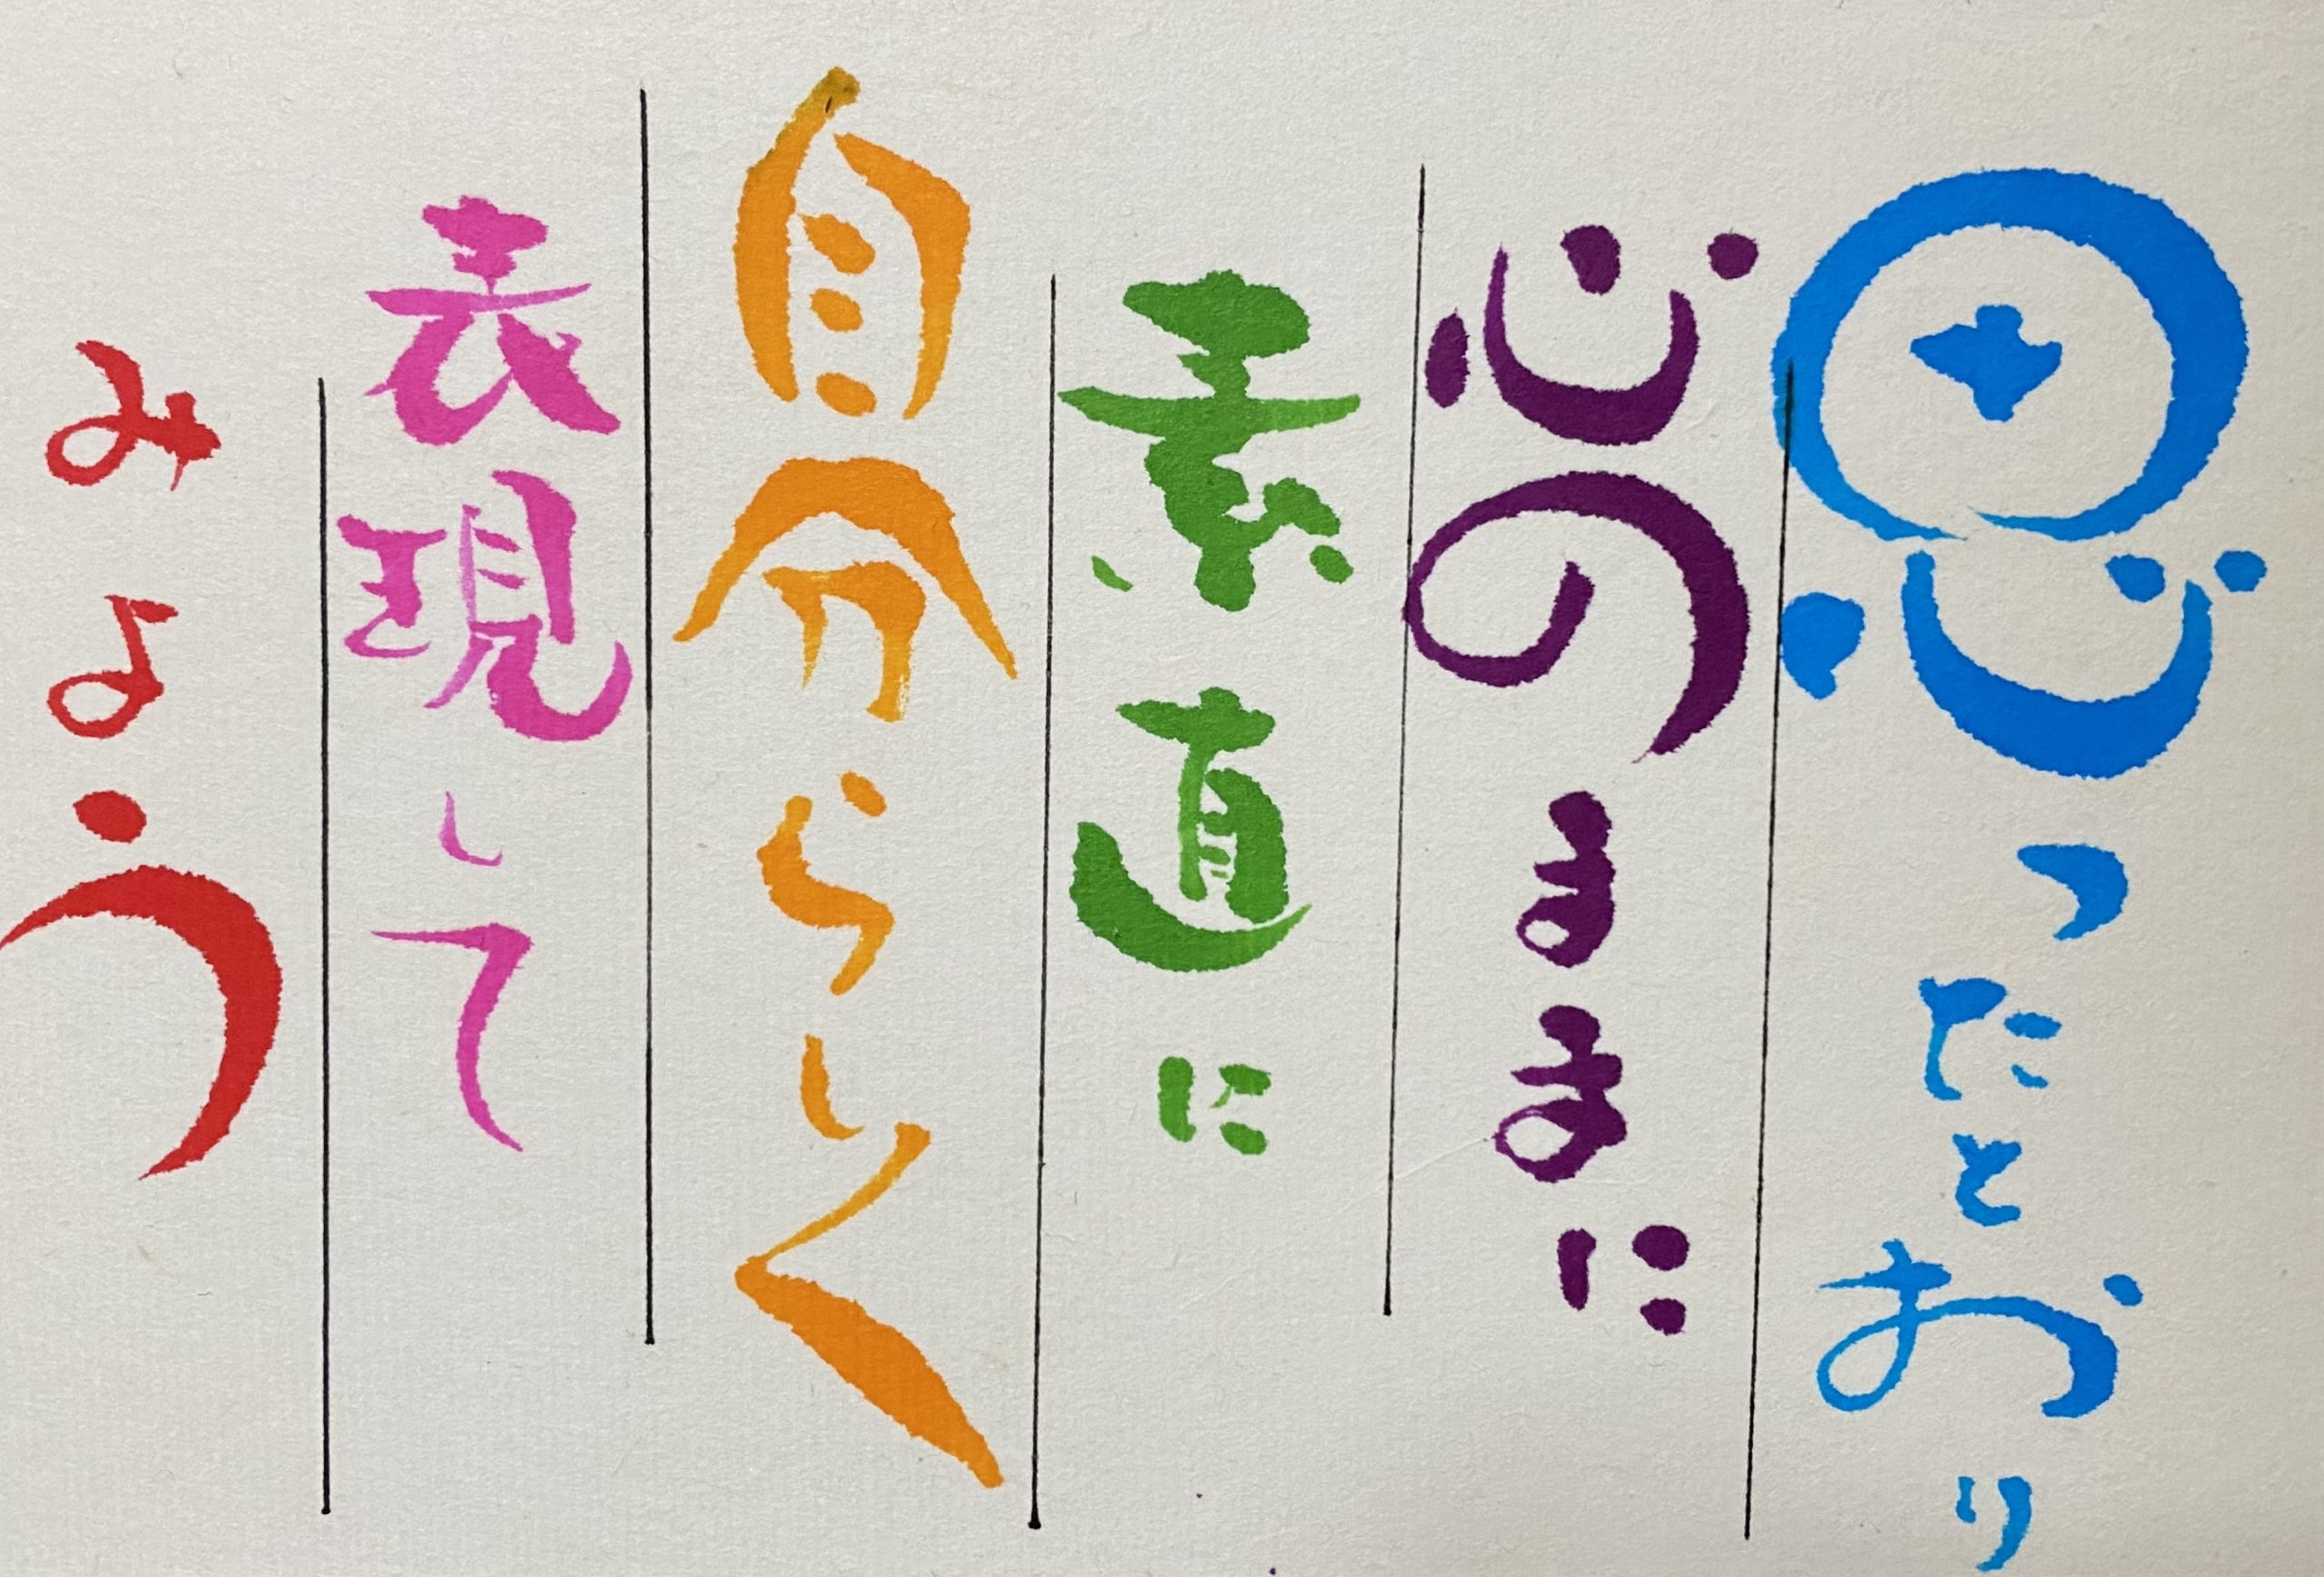 思ったとおり
心のままに
素直に
自分らしく
表現して
みよう